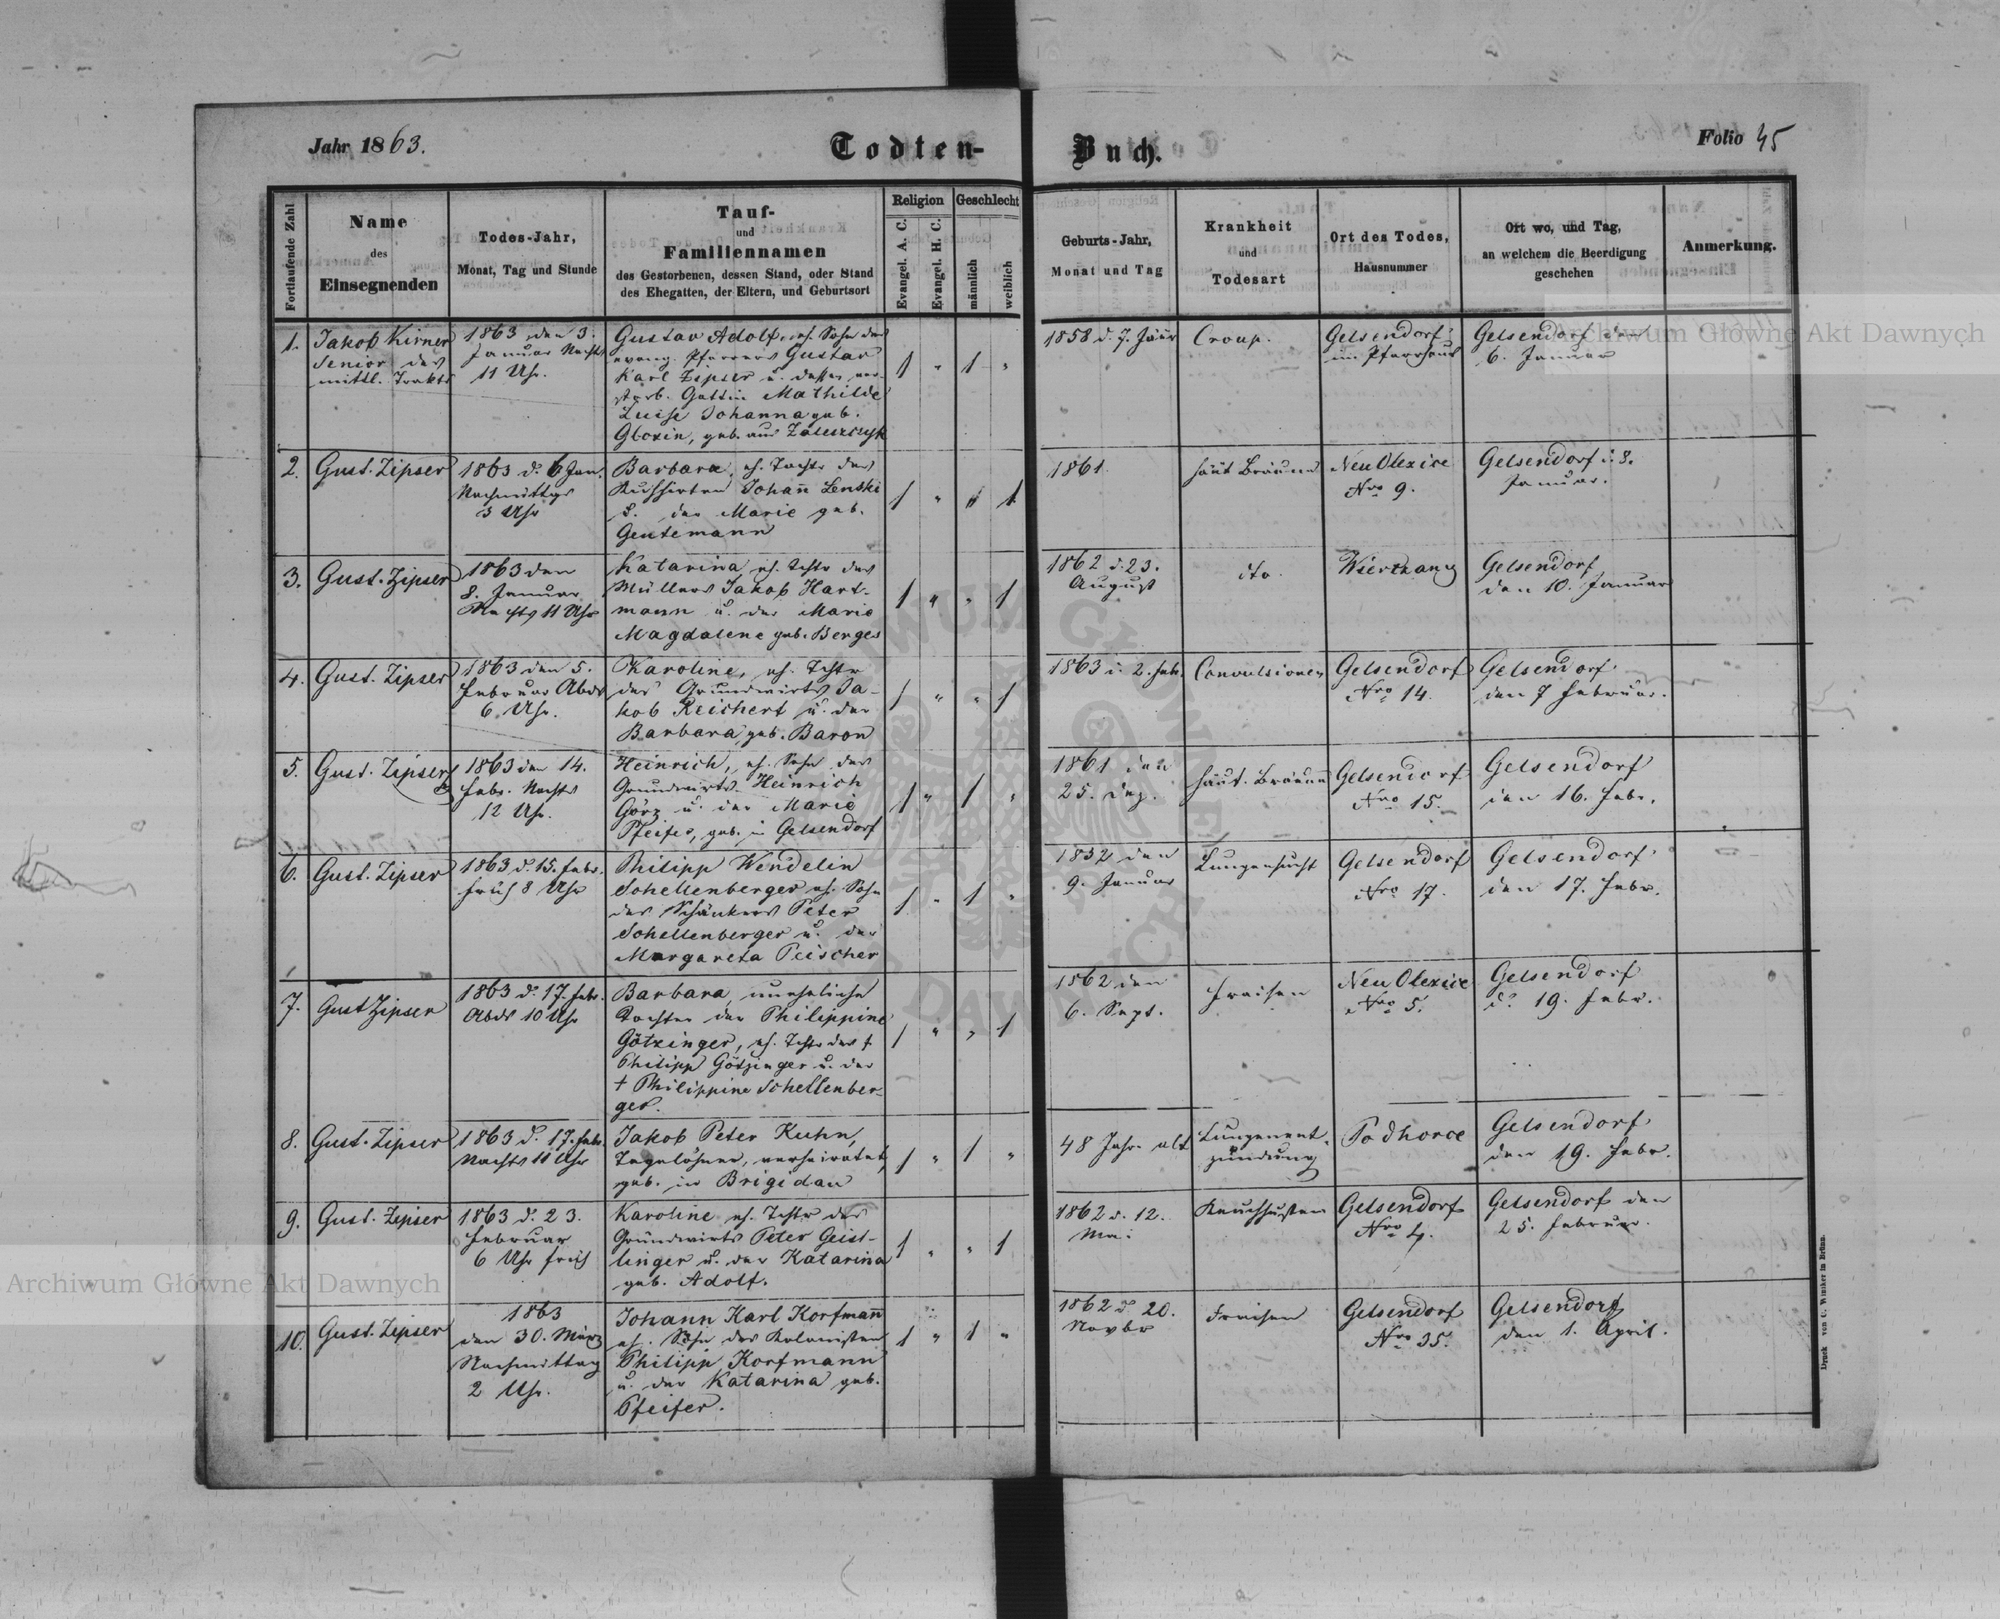 Jahr 1863.
Todten-
Buch.
Folio 45
Fortlaufende Zahl
Name
des
Einsegnenden
Todes-Jahr,
Monat, Tag und Stunde
Tauf-
und
Familiennamen
des Gestorbenen, dessen Stand, oder Stand
des Ehegatten, der Eltern, und Geburtsort
Religion
Evangel. A. C.
Evangel. H. C.
Geschlecht
männlich
weiblich
Geburts-Jahr,
Monat und Tag
Krankheit
und
Todesart
Ort des Todes,
Hausnummer
Ort wo, und Tag,
an welchem die Beerdigung
geschehen
Anmerkung.
1.
Jakob Kirner
Senior des
mittl. Trakts
1863 den 3.
Januar Nachts
11 Uhr.
Gustav Adolf, eh. Sohn des
evang. Pfarrers Gustav
Karl Zipser u. dessen ver-
storb. Gattin Mathilde
Luise Johanna geb.
Gloxin, geb. aus
1 " 1 "
1858 d. 7. Jänr
Croup.
Gelsendorf
im Pfarrhaus
Gelsendorf den
6. Januar
2.
Gust. Zipser
1863 d. 6 Jan.
Nachmittgs
3 Uhr
Barbara, eh. Tochtr des
Kuhhirten Johañ Lenski
u. der Marie geb.
Gentemann
1 " " 1
1861.
häut Bräune
Neu Olexice
Nro 9.
Gelsendorf d. 8.
Januar.
3.
Gust. Zipser
1863 den
8. Januar
Nachts 11 Uhr
Katarina eh. Tchtr des
Müllers Jakob Hart-
mann u. der Marie
Magdalene geb. Berges
1 " " 1
1862 d. 23.
August
dto.
Wierzany
Gelsendorf
den 10. Januar
4.
Gust. Zipser
1863 den 5.
Februar Abds
6 Uhr.
Karoline, eh. Tchtr
des Grundwirts Ja-
kob Reichert u. der
Barbara, geb. Baron
1 " " 1
1863 d. 2. Feb.
Convulsionen
Gelsendorf
Nro 14.
Gelsendorf
den 7 Februar.
5.
Gust. Zipser
1863 den 14.
Febr. Nachts
12 Uhr.
Heinrich, eh. Sohn des
Grundwirts Heinrich
Görz u. der Marie
Pfeifer, geb. in Gelsendorf
1 " 1 "
1861 den
25. Dez.
häut. Bräune
Gelsendorf
Nro 15.
Gelsendorf
den 16. Febr.
6.
Gust. Zipser
1863 d. 15. Febr.
früh 8 Uhr
Philipp Wendelin
Schellenberger eh. Sohn
des Schänkers Peter
Schellenberger u. der
Margareta Peischer
1 " 1 "
1832 den
9. Januar
Lungensucht
Gelsendorf
Nro 17.
Gelsendorf
den 17. Febr.
7.
Gust Zipser
1863 d. 17. Febr.
Abds 10 Uhr
Barbara, uneheliche
Tochter der Philippine
Götzinger, eh. Tchtr des †
Philipp Götzinger u. der
† Philippine Schellenber-
ger.
1 " " 1
1862 den
6. Sept.
Fraisen
Neu Olexice
Nro 5.
Gelsendorf
d. 19. Febr.
8.
Gust. Zipser
1863 d. 17. Febr.
Nachts 11 Uhr
Jakob Peter Kuhn,
Tagelöhner, verheiratet,
geb. in Brigidau
1 " 1 "
48 Jahre alt
Lungenent-
zündung
Podhorce
Gelsendorf
den 19. Febr.
9.
Gust. Zipser
1863 d. 23.
Februar
6 Uhr früh
Karoline eh. Tchtr des
Grundwirts Peter Geist-
linger u. der Katarina
geb. Adolf.
1 " " 1
1862 d. 12.
Mai
Keuchhusten
Gelsendorf
Nro 4.
Gelsendorf den
25. Februar.
10.
Gust. Zipser
1863
den 30. März
Nachmittag
2 Uhr.
Johann Karl Korfmañ
eh. Sohn des Kolonisten
Philipp Korfmann
u. der Katarina geb.
Pfeifer.
1 " 1 "
1862 d. 20.
Novbr
Fraisen
Gelsendorf
Nro 35.
Gelsendorf
den 1. April.
Druck von C. Winiker in Brünn.
Archiwum Główne Akt Dawnych
Archiwum Główne Akt Dawnych
ARCHIWUM GŁÓWNE AKT DAWNYCH